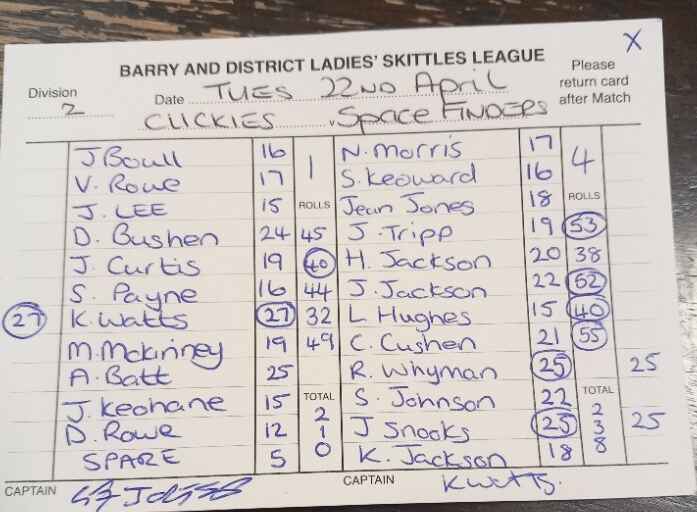 X
BARRY AND DISTRICT LADIES' SKITTLES LEAGUE
Please return card after Match
Division 2
Date TUES 22ND April
CLICKIES v Space FINDERS
J Boull 16 1 N. Morris 17 4
V. Rowe 17 S. Keoward 16
J. LEE 15 ROLLS Jean Jones 18 ROLLS
D. Bushen 24 45 J. Tripp 19 53
J. Curtis 19 40 H. Jackson 20 38
S. Payne 16 44 J. Jackson 22 52
27 K. Watts 27 32 L Hughes 15 40
M. Mckinney 19 49 C. Cushen 21 55
A. Batt 25 R. Whyman 25 25
J. Keohane 15 TOTAL S. Johnson 22 TOTAL
D. Rowe 12 210 J Snooks 25 238 25
SPARE 5 K. Jackson 18
CAPTAIN CAPTAIN K Watts.